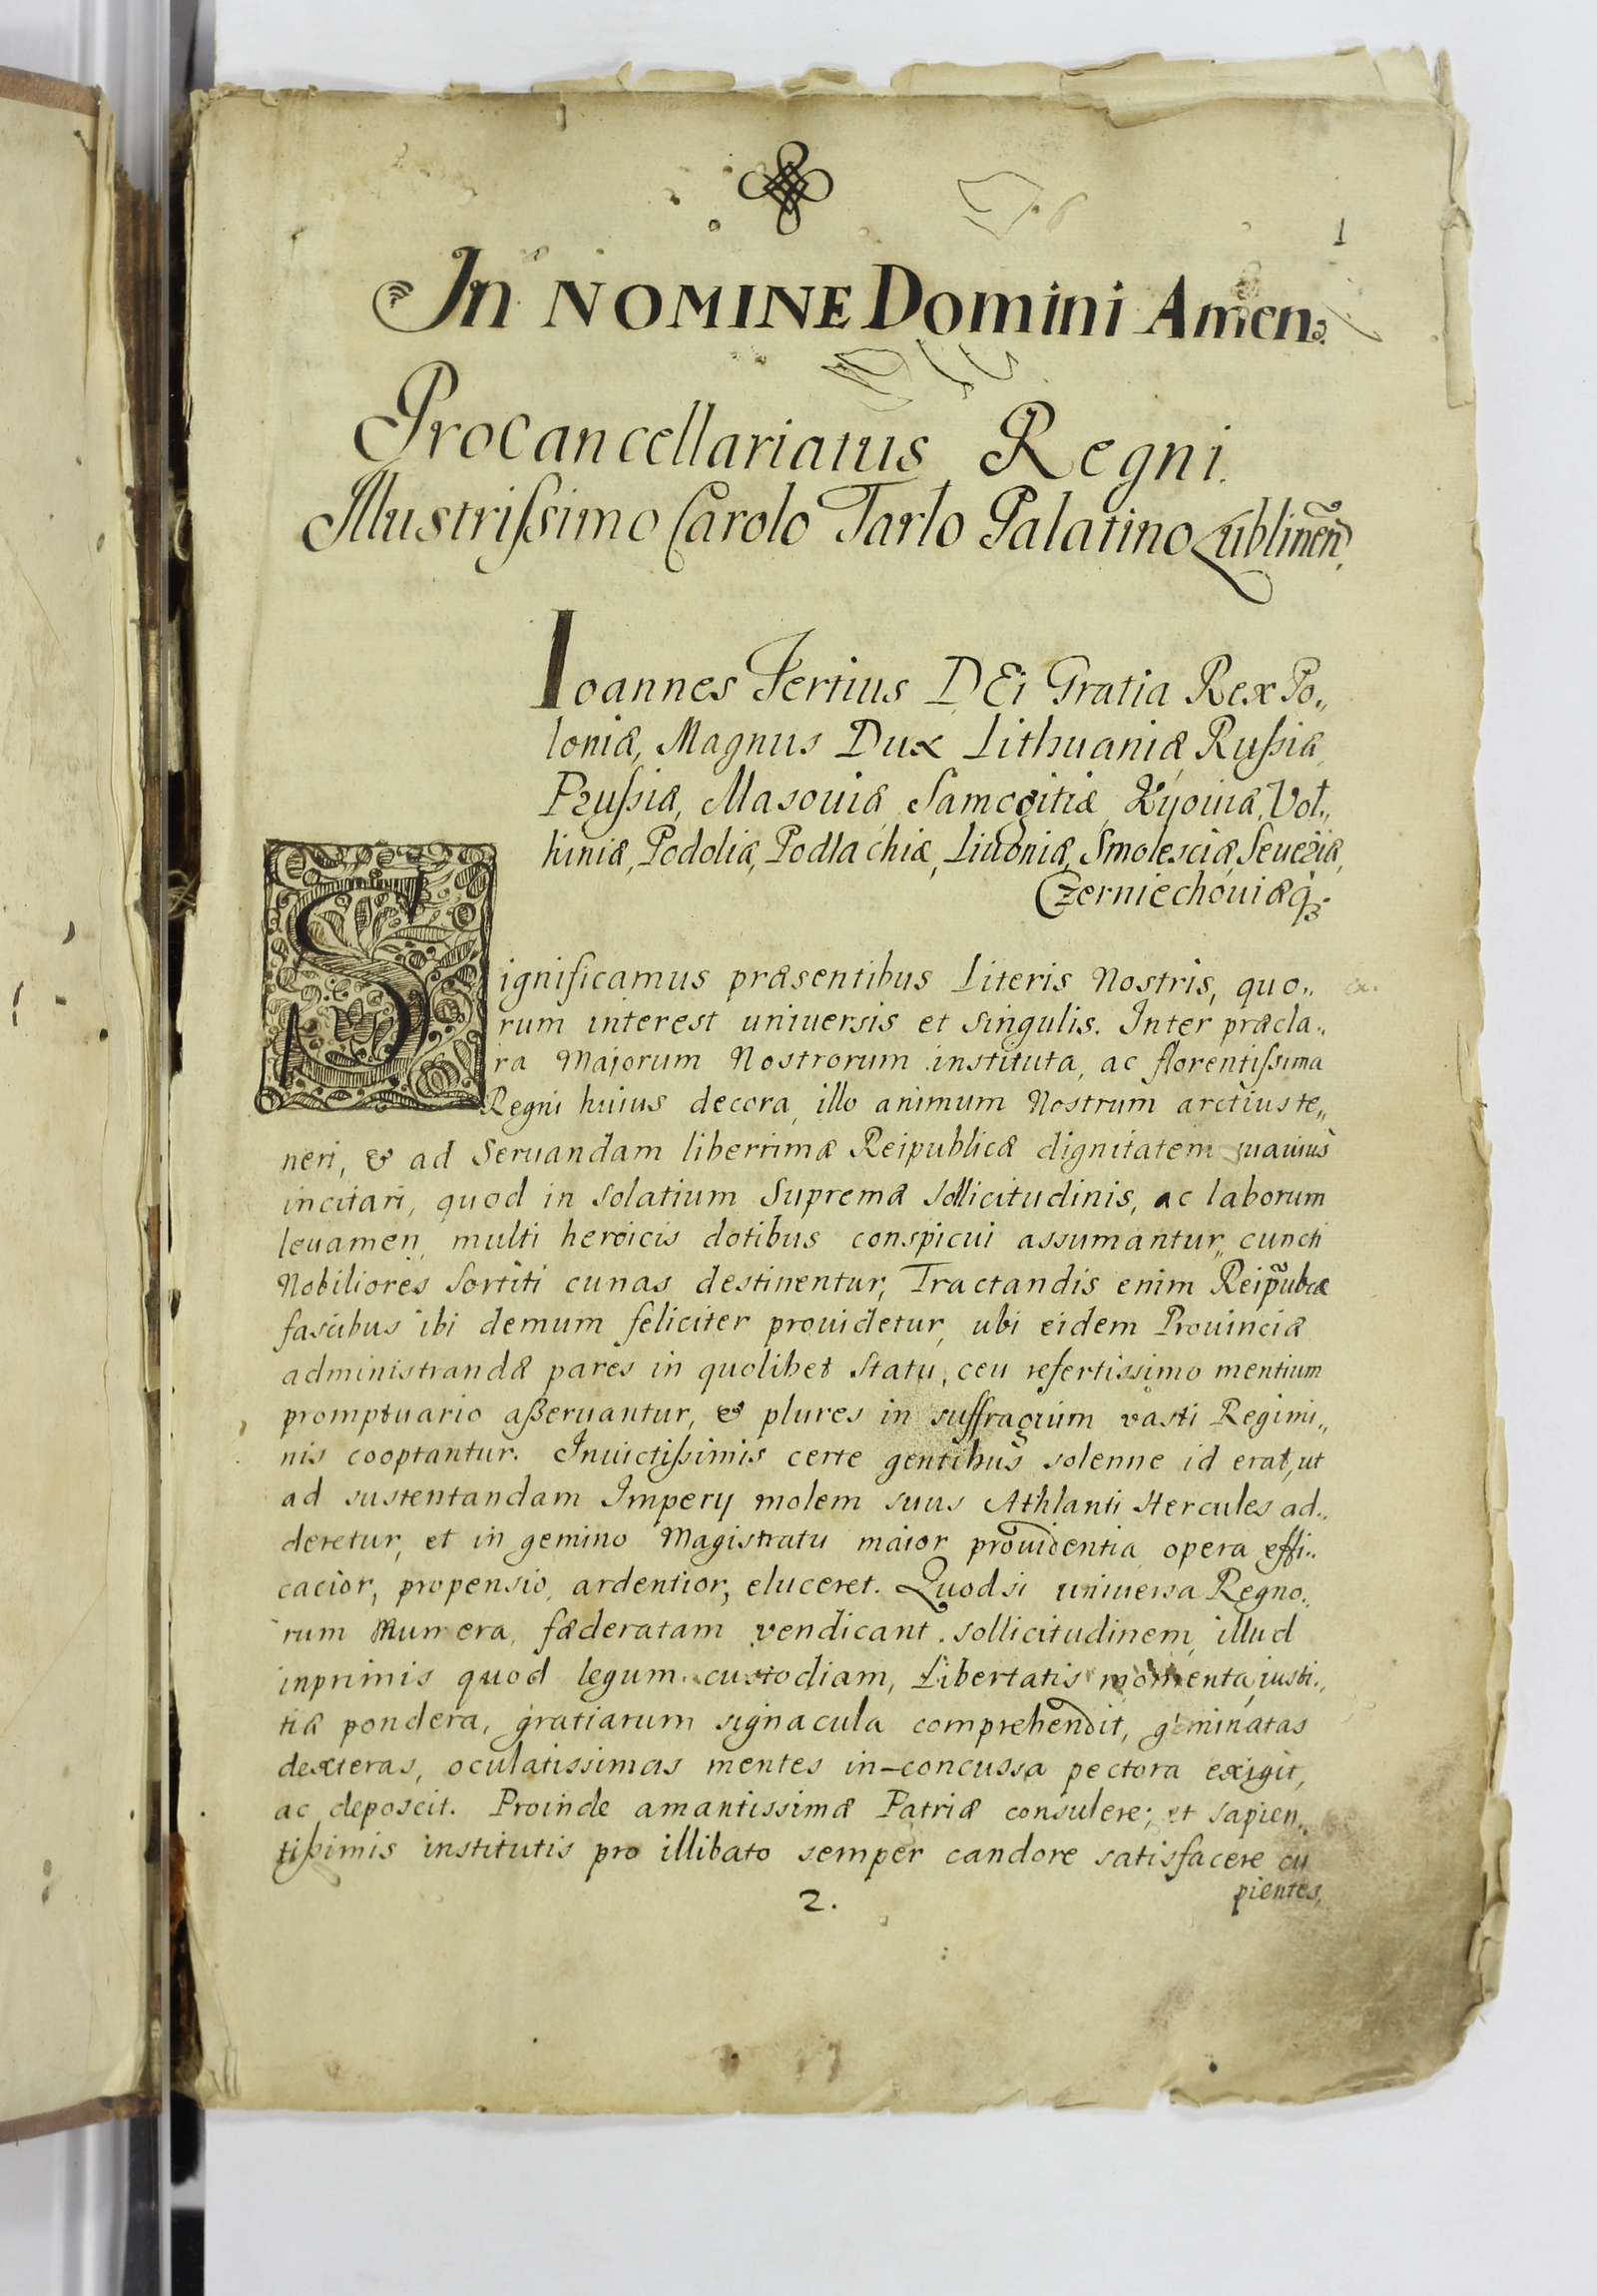 1
In NOMINE Domini Amen.
Procancellariatus Regni.
Illustrissimo Carolo Tarlo Palatino Lublinen̄.
Ioannes Tertius DEi Gratia Rex Po„
loniæ, Magnus Dux Lithuaniæ Russiæ
Prussiæ, Masouiæ Samogitiæ Kijouiæ, Vol„
hiniæ, Podoliæ, Podlachiæ, Liuoniæ, Smolesciæ Seueriæ,
Czerniechouiæq3.
Significamus præsentibus Literis Nostris, quo„
rum interest uniuersis et singulis. Inter præcla„
ra Majorum Nostrorum instituta, ac florentissima
Regni huius decora, illo animum Nostrum arctius te„
neri, & ad Seruandam liberrimæ Reipublicæ dignitatem suauius
incitari, quod in Solatium Supremæ sollicitudinis, ac laborum
leuamen, multi heroicis dotibus conspicui assumantur, cuncti
Nobiliores Sortiti cunas destinentur, Tractandis enim Reipubcæ
fascibus ibi demum feliciter prouidetur, ubi eidem Prouinciæ
administrandæ pares in quolibet Statu, ceu refertissimo mentium
promptuario aßeruantur, & plures in suffragium vasti Regimi„
nis cooptantur. Inuictissimis certe gentibus solenne id erat, ut
ad sustentandam Imperij molem suus Athlanti Hercules ad„
deretur, et in gemino Magistratu maior prouidentia opera effi„
cacior, propensio, ardentior, eluceret. Quodsi uniuersa Regno„
rum Munera, fæderatam vendicant sollicitudinem, illud
inprimis quod legum custodiam, Libertatis momenta, iusti„
tiæ pondera, gratiarum signacula comprehendit, geminatas
dexteras, oculatissimas mentes in-concussa pectora exigit,
ac deposcit. Proinde amantissimæ Patriæ consulere; et sapien„
tissimis institutis pro illibato semper candore satisfacere cu
pientes,
2.